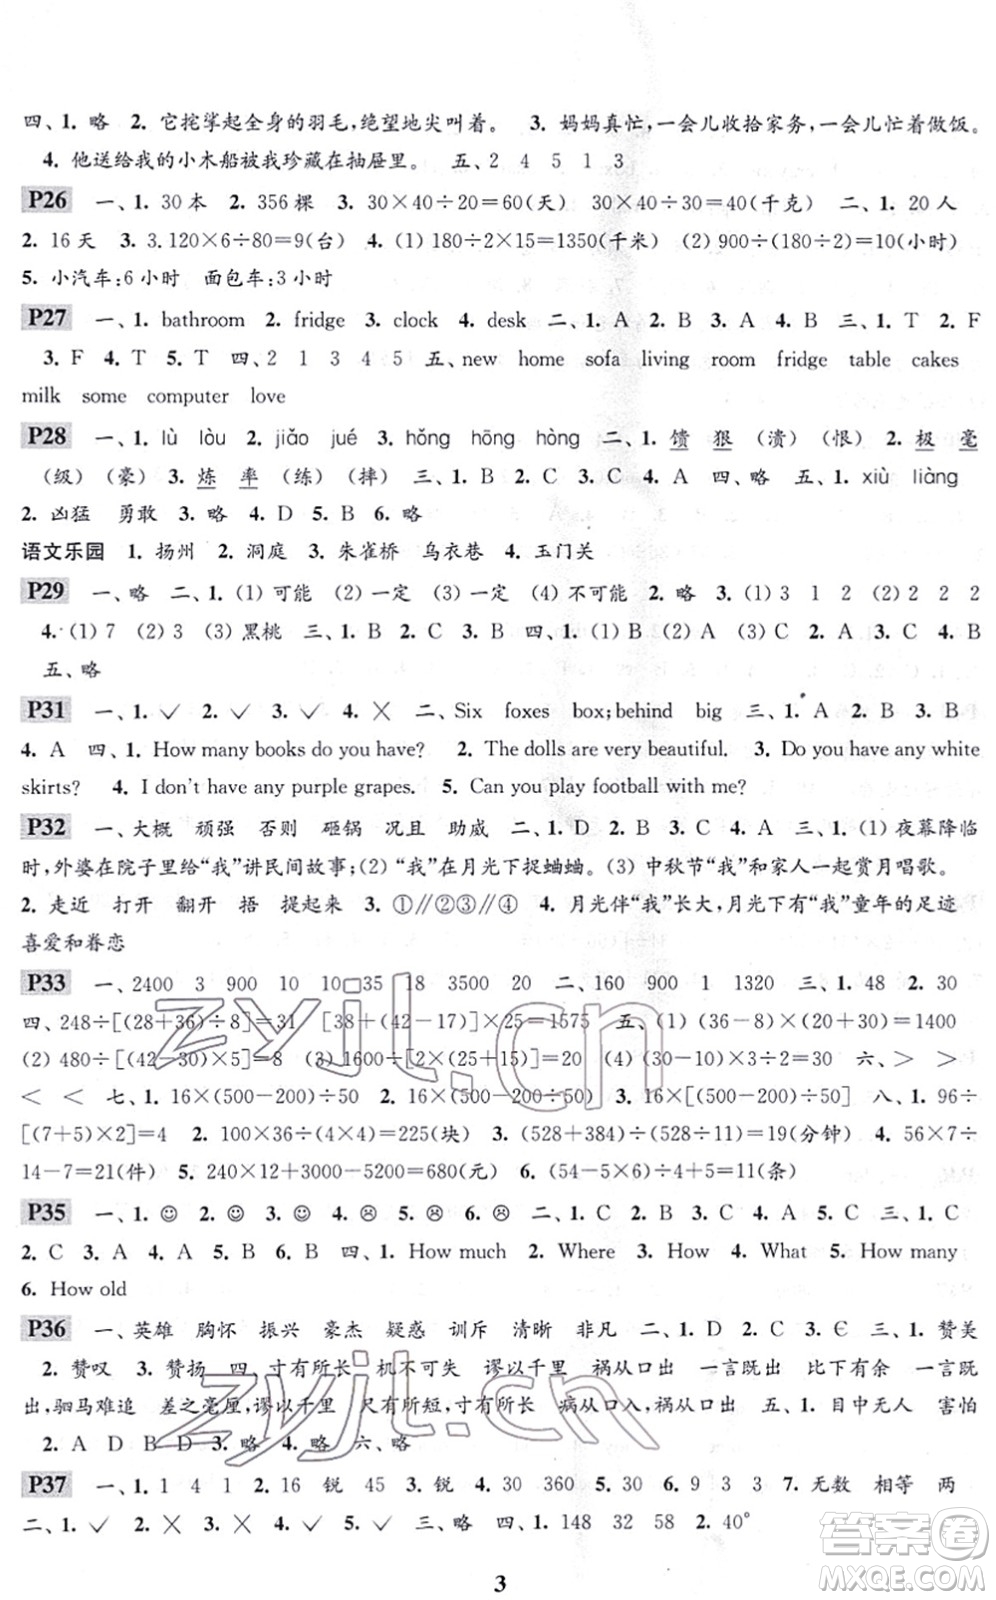 四、1. 略 2. 它挓挲起全身的羽毛,绝望地尖叫着。 3. 妈妈真忙,一会儿收拾家务,一会儿看做饭。
4. 他送给我的小木船被我珍藏在抽屉里。 五、2 4 5 1 3
P26 一、1. 30本 2. 356棵 3. 30×40÷20=60(天) 30×40÷30=40(千克) 二、1. 20人
2. 16天 3. 3.120×6÷80=9(台) 4. (1) 180÷2×15=1350(千米) (2) 900÷(180÷2)=10(小时)
5. 小汽车:6小时 面包车:3小时
P27 一、1. bathroom 2. fridge 3. clock 4. desk 二、1. A 2. B 3. A 4. B 三、1. T 2. F
3. F 4. T 5. T 四、2 1 3 4 5 五、new home sofa living room fridge table cakes
milk some computer love
P28 一、1. lù lòu 2. jiǎo jué 3. hǒng hōng hòng 二、1. 馈 狠 (溃) (恨) 2. 极 毫
(级) (豪) 3. 炼 率 (练) (摔) 三、1. B 2. C 3. C 4. A 四、略 五、1. xiù liàng
2. 凶猛 勇敢 3. 略 4. D 5. B 6. 略
语文乐园 1. 扬州 2. 洞庭 3. 朱雀桥 乌衣巷 4. 玉门关
P29 一、略 二、1. (1) 可能 (2) 一定 (3) 一定 (4) 不可能 2. 略 3. (1) 3 1 2 (2) 2 2 2
4. (1) 7 (2) 3 (3) 黑桃 三、1. B 2. C 3. B 四、1. (1) B (2) A (3) C 2. A 3. C 4. B
五、略
P31 一、1. ✓ 2. ✓ 3. ✓ 4. × 二、Six foxes box;behind big 三、1. A 2. B 3. B
4. A 四、1. How many books do you have? 2. The dolls are very beautiful. 3. Do you have any white
skirts? 4. I don't have any purple grapes. 5. Can you play football with me?
P32 一、大概 顽强 否则 砸锅 况且 助威 二、1. D 2. B 3. C 4. A 三、1. (1) 夜幕降临
时,外婆在院子里给“我”讲民间故事;(2) “我”在月光下捉蛐蛐。(3) 中秋节“我”和家人一起赏月唱歌。
2. 走近 打开 翻开 捂 提起来 3. ①∥②③∥④ 4. 月光伴“我”长大,月光下有“我”童年的足迹
喜爱和眷恋
P33 一、2400 3 900 10 10□35 18 3500 20 二、160 900 1 1320 三、1. 48 2. 30
四、248÷[(28+36)÷8]=31 [38+(42-17)]×25=1575 五、(1) (36-8)×(15+35)=1400
(2) 480÷[(42-30)×5]=8 (3) 1600÷[2×(25+15)]=20 (4) (30-10)×3÷2=30 六、> >
< < 七、1. 16×(500-200)÷50 2. 16×(500-200÷50) 3. 16×[(500-200)÷50] 八、1. 96÷
[(7+5)×2]=4 2. 100×36÷(4×4)=225(块) 3. (528+384)÷(528÷11)=19(分钟) 4. 56×7÷
14-7=21(件) 5. 240×12+3000-5200=680(元) 6. (54-5×6)÷4+5=11(条)
P35 一、1. ☺ 2. ☺ 3. ☺ 4. ☹ 5. ☹ 6. ☹ 二、1. C 2. B 3. C 4. A 5. C 三、1. C
2. C 3. A 4. A 5. B 四、1. How much 2. Where 3. How 4. What 5. How many
6. How old
P36 一、英雄 胸怀 振兴 豪杰 疑惑 训斥 清晰 非凡 二、1. D 2. C 3. C 三、1. 赞美
2. 赞叹 3. 赞扬 四、寸有所长 机不可失 谬以千里 祸从口出 一言既出 比下有余 一言既
出,驷马难追 差之毫厘,谬以千里 尺有所短,寸有所长 病从口入,祸从口出 五、1. 目中无人 害怕
2. A D B D 3. 略 4. 略 六、略
P37 一、1. 1 4 1 2. 16 锐 45 3. 锐 4. 30 360 5. 25 6. 9 3 3 7. 无数 相等 两
二、1. ✓ 2. × 3. × 4. ✓ 5. ✓ 三、略 四、1. 148 32 58 2. 40°
3
zyjl.cn
zyjl.cn
答案圈
MXQE.COM